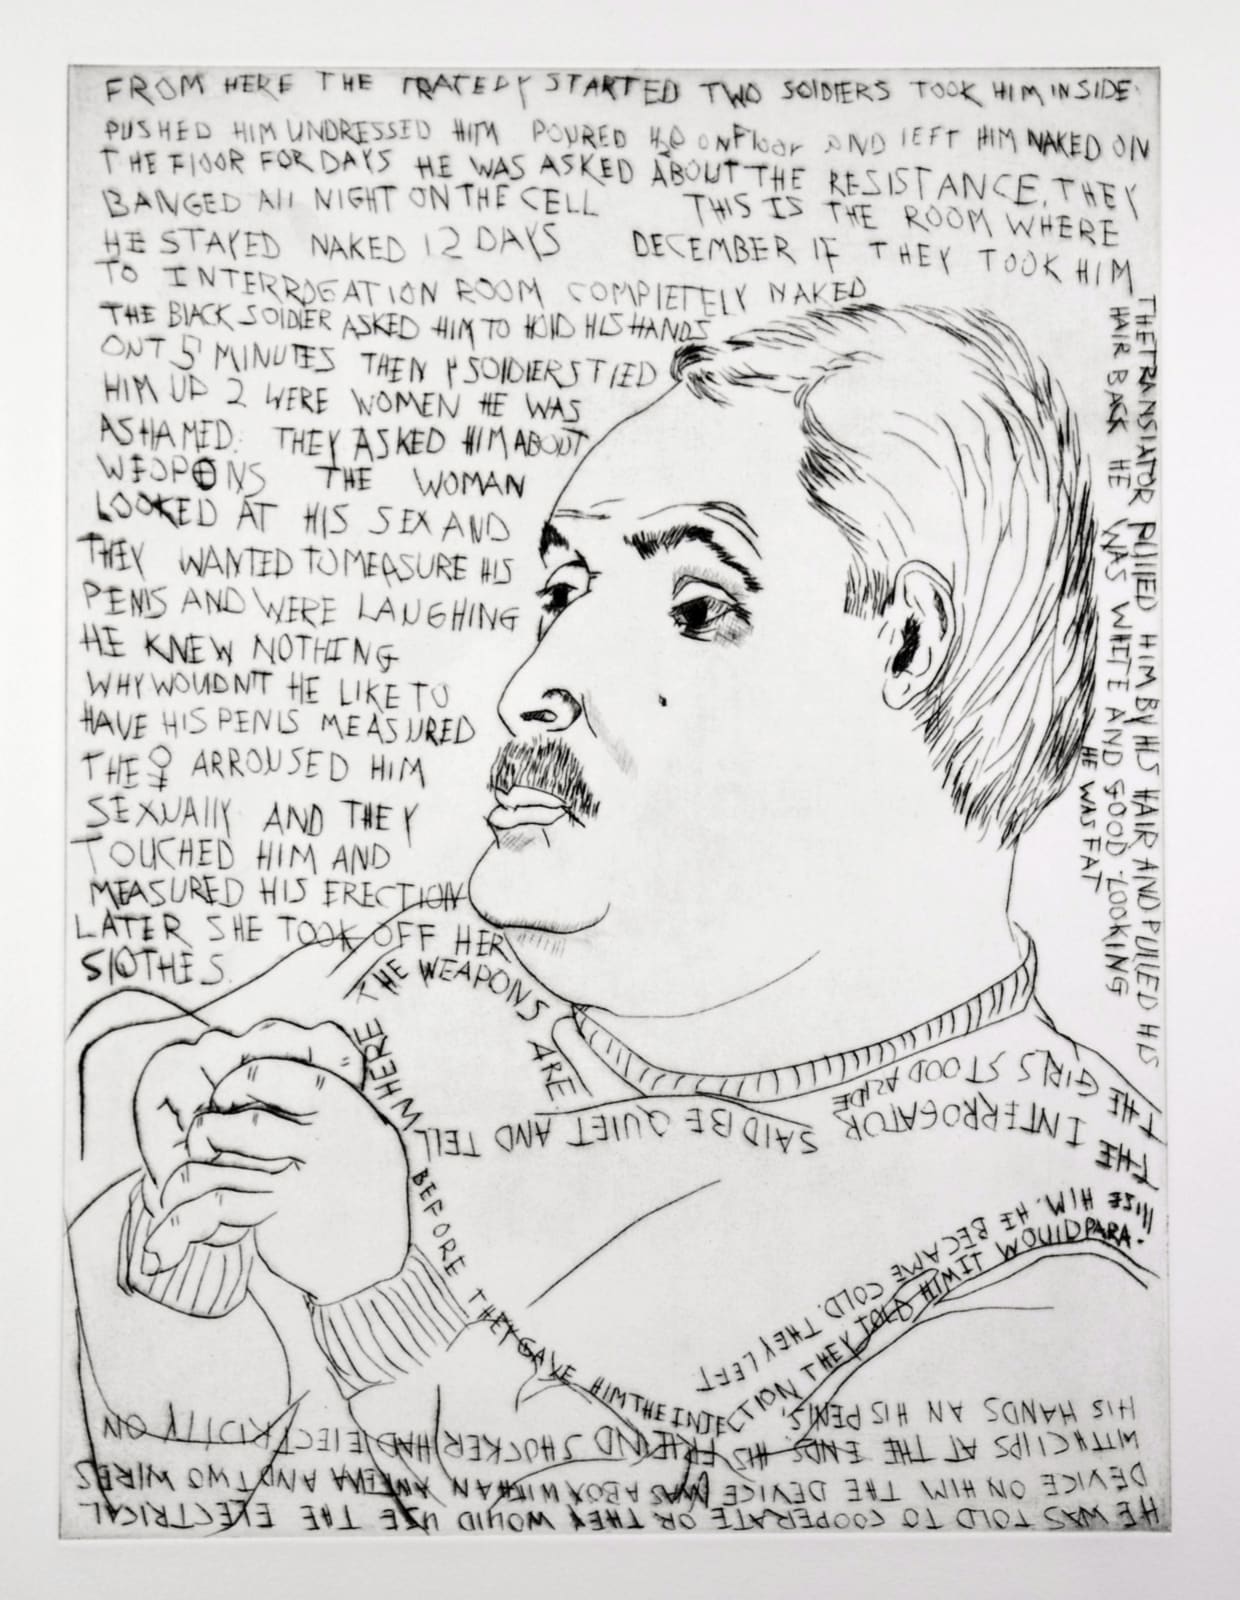 FROM HERE THE TRATEDY STARTED TWO SOIDIERS TOOK HIM IN SIDE
PUSHED HIM UNDRESSED HIM POURED H2O ON FlooR AND lEFT HIM NAKED ON
THE FlOOR FOR DAYS HE WAS ASKED ABOUT THE RESISTANCE. THEY
BANGED All NIGHT ON THE CELL THIS IS THE ROOM WHERE
HE STAYED NAKED 12 DAYS DECEMBER 17 THEY TOOK HIM
TO INTERROGATION ROOM COMPlETElY NAKED
THE BlACK SOlDIER ASKED HIM TO HOlD HIS HANDS
ONT 5 MINUTES THEN 4 SOlDIERS TIED
HIM UP 2 WERE WOMEN HE WAS
ASHAMED. THEY ASKED HIM ABOUT
WEOPONS THE WOMAN
LOOKED AT HIS SEX AND
THEY WANTED TO MEASURE HIS
PENIS AND WERE LAUGHING
HE KNEW NOTHING
WHY WOUlDN'T HE LIKE TO
HAVE HIS PENIS MEASURED
THE ♀ ARROUSED HIM
SEXUAllY AND THEY
TOUCHED HIM AND
MEASURED HIS ERECTION
LATER SHE TOOK OFF HER
SlOTHES.
THE TRANSlATOR PUllED HIM BY HIS HAIR AND PULLED HIS
HAIR BACK HE WAS WHITE AND GOOD-LOOKING
HE WAS FAT
THE GIRlS STOOD ASIDE
THE INTERROGATOR SAID BE QUIET AND TEll
WHERE THE WEAPONS ARE
BEFORE THEY GAVE HIM THE INJECTION THEY TOlD HIM IT WOUlD PARA-
lIZE HIM. HE BECAME COLD. THEY LEFT.
HE WAS TOLD TO COOPERATE OR THEY WOUlD USE THE ElECTRICAL
DEVICE ON HIM THE DEVICE WAS A BOX WITH AN ANTENA AND TWO WIRES
WITH CLIPS AT THE ENDS. HIS FRIEND SHOCKER HAD ElECTRICITY ON
HIS HANDS AN HIS PENIS.